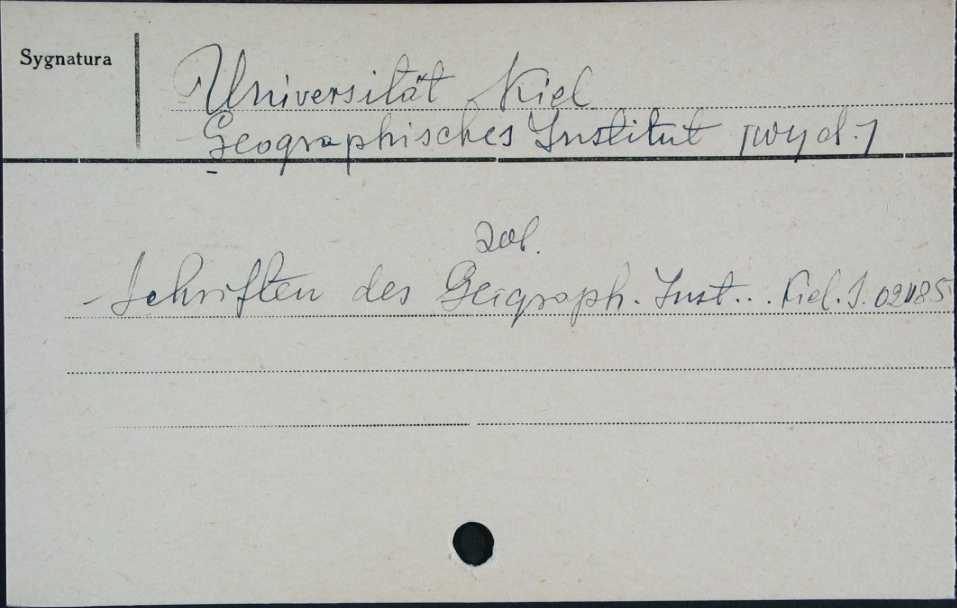 Sygnatura
Universität Kiel
Geographisches Institut [wyd.]
zob.
- Schriften des Geograph. Inst... Kiel. S. 02185